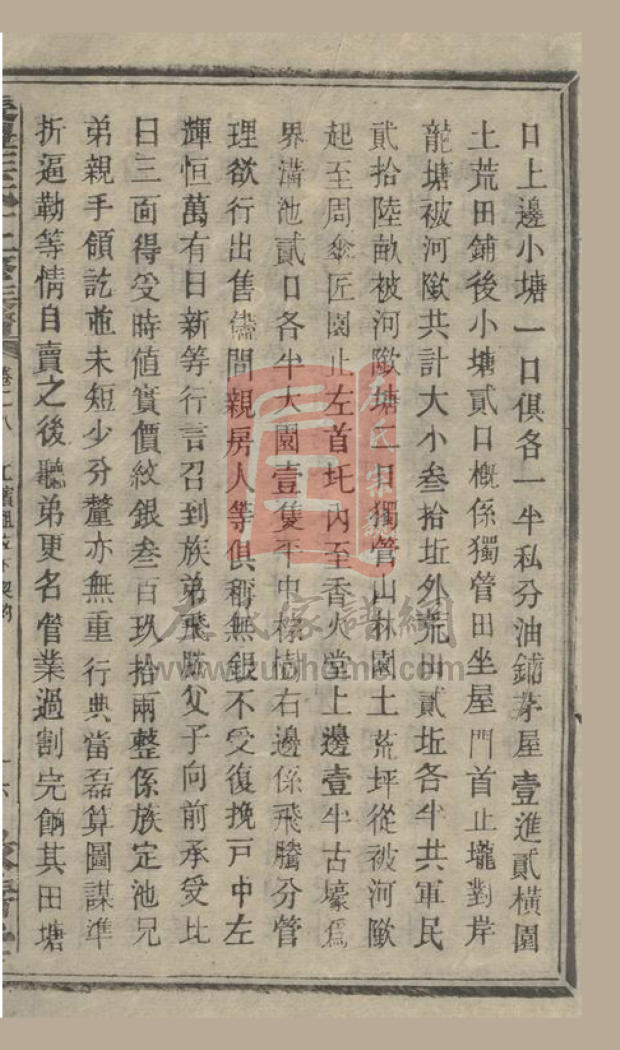 口上邊小塘一口俱各一半私分油鋪茅屋壹進貳橫園
土荒田鋪後小塘貳口概係獨管田坐屋門首止壠對岸
龍塘被河歐共計大小叁拾坵外荒田貳坵各半共軍民
貳拾陸畝被河歐塘二口獨管山林園土荒坪從被河歐
起至周傘匠園止左首圫內至香火堂上邊壹半古壕爲
界溝池貳口各半大園壹隻平中樣樹右邊係飛騰分管
理欲行出售儘問親房人等俱稱無銀不受復挽戸中左
輝恒萬有日新等行言召到族弟飛騰父子向前承受比
日三面得受時値實價紋銀叁百玖拾兩整係族定池兄
弟親手領訖並未短少分釐亦無重行典當磊算圖謀準
折逼勒等情自賣之後聽弟更名管業過割完餉其田塘
卷二八
左氏家譜網
www.zuohome.com